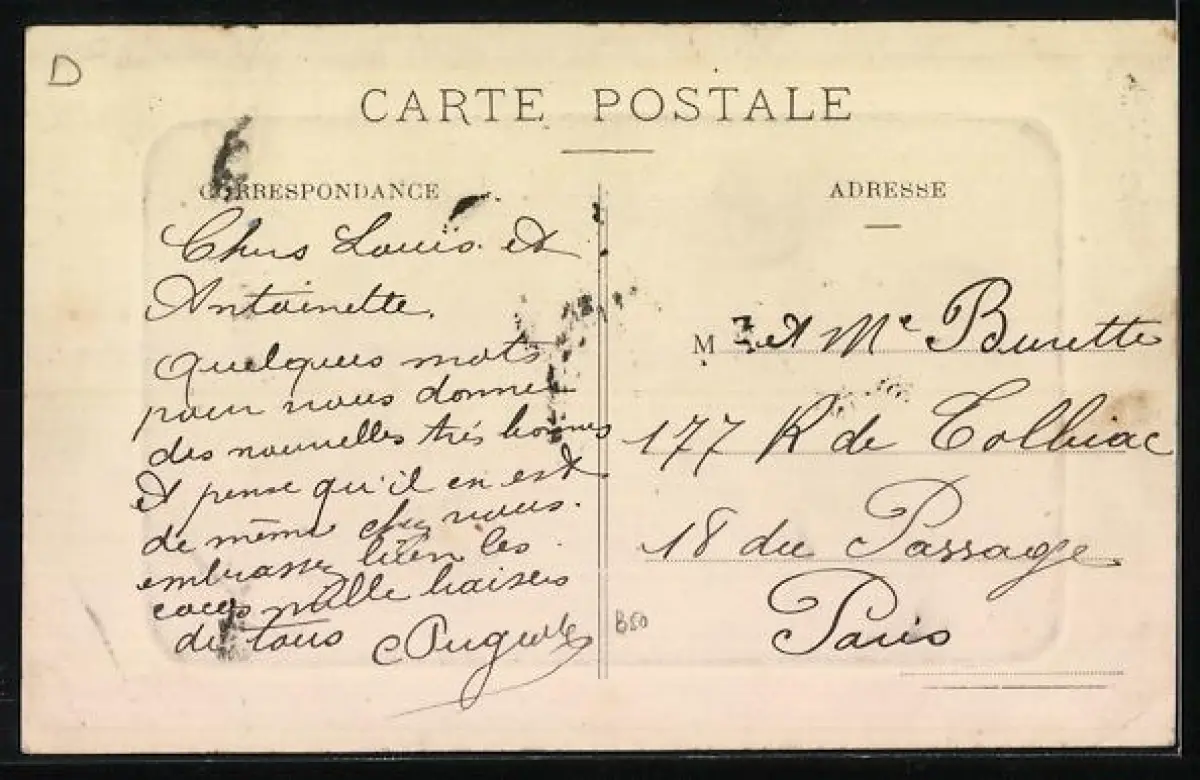 D
CARTE POSTALE
CORRESPONDANCE
Chers Louis et
Antoinette.
quelques mots
pour vous donner
des nouvelles très bonnes
et pense qu'il en est
de même chez vous.
embrassez bien les
mille baisers
de tous
ADRESSE
M et Me Burette
177 R de Tolbiac
18 du Passage
Paris
B50